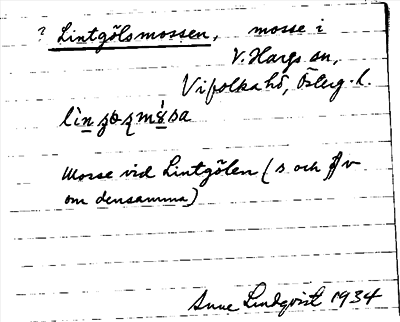 ? Lintgölsmossen, mosse i
V. Hargs sn,
Vifolka hd, Österg. l.
Mosse vid Lintgölen (s och v
om densamma)
Anne Lindqvist 1934